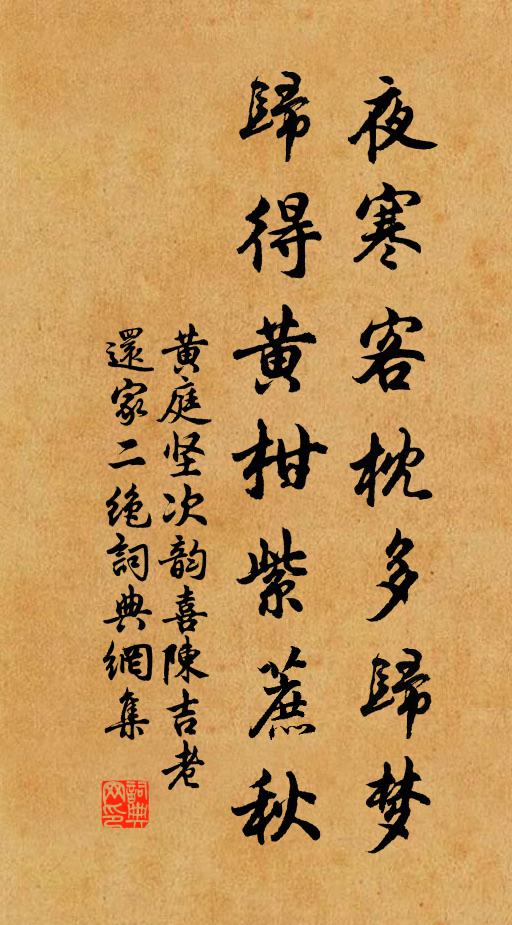 夜寒客枕多歸梦
歸得黄柑紫蔗秋
黄庭坚次韵喜陳吉老
還家二绝詞典網集
詞典
网印